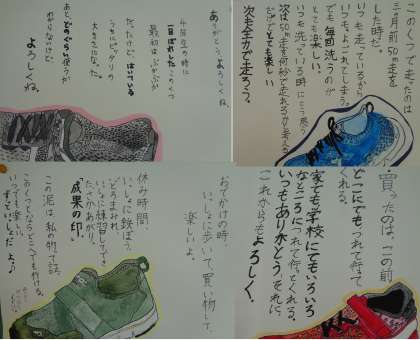 ありがとう、よろしくね。
4年生の時に
一目ぼれしたこのくつ
最初はぶかぶか
だったけど はいている
うちにピッタリの
大きさになった。
あと、どのくらい使うか
分からないけど
よろしくね。
このくつで走ったのは
三ヶ月前 50m走を
した時だ。
いつも走っているから
いつもよごれてしまう。
でも毎回洗うのが
とても楽しい。
いつも洗っている時に思う
次は50m走を何秒で走れるか考える
だけでとても楽しい
次も全力で走ろう。
おでかけの時、
いっしょに歩いて買い物して、
楽しいよ。
休み時間、
いっしょに鉄ぼう
どろまみれ。
いっしょに練習してできた
たくさかあがり。
「成果の印。」
この泥は私の物で話。
このくつならどこへでも行ける。
いつでも楽しく
すごしていこうだよ♪
買ったのは、この前
どこにでもつれて行って
くれる。
家でも学校にでもいろいろ
なところにつれて行ってくれる。
いつもありがとう。
これからもよろしく。